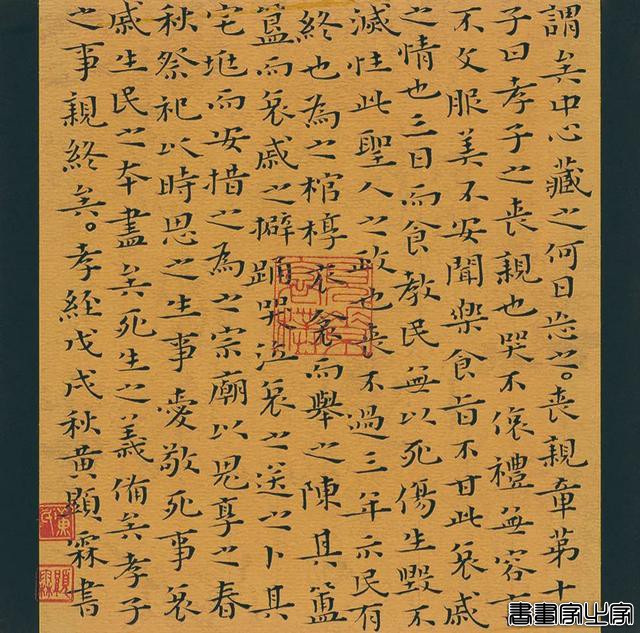 謂矣中心藏之何日忘之。喪親章第十
子曰孝子之喪親也哭不偯禮無容言
不文服美不安聞樂食旨不甘此哀戚
之情也三日而食教民無以死傷生毀不
滅性此聖人之政也喪不過三年示民有
終也為之棺椁衣衾而舉之陳其簠
簋而哀戚之擗踊哭泣哀以送之卜其
宅垗而安措之為之宗廟以鬼享之春
秋祭祀以時思之生事愛敬死事哀
戚生民之本盡矣死生之義備矣孝子
之事親終矣。孝經戊戌秋黃顯霖書
黃氏
顯霖
書畫家